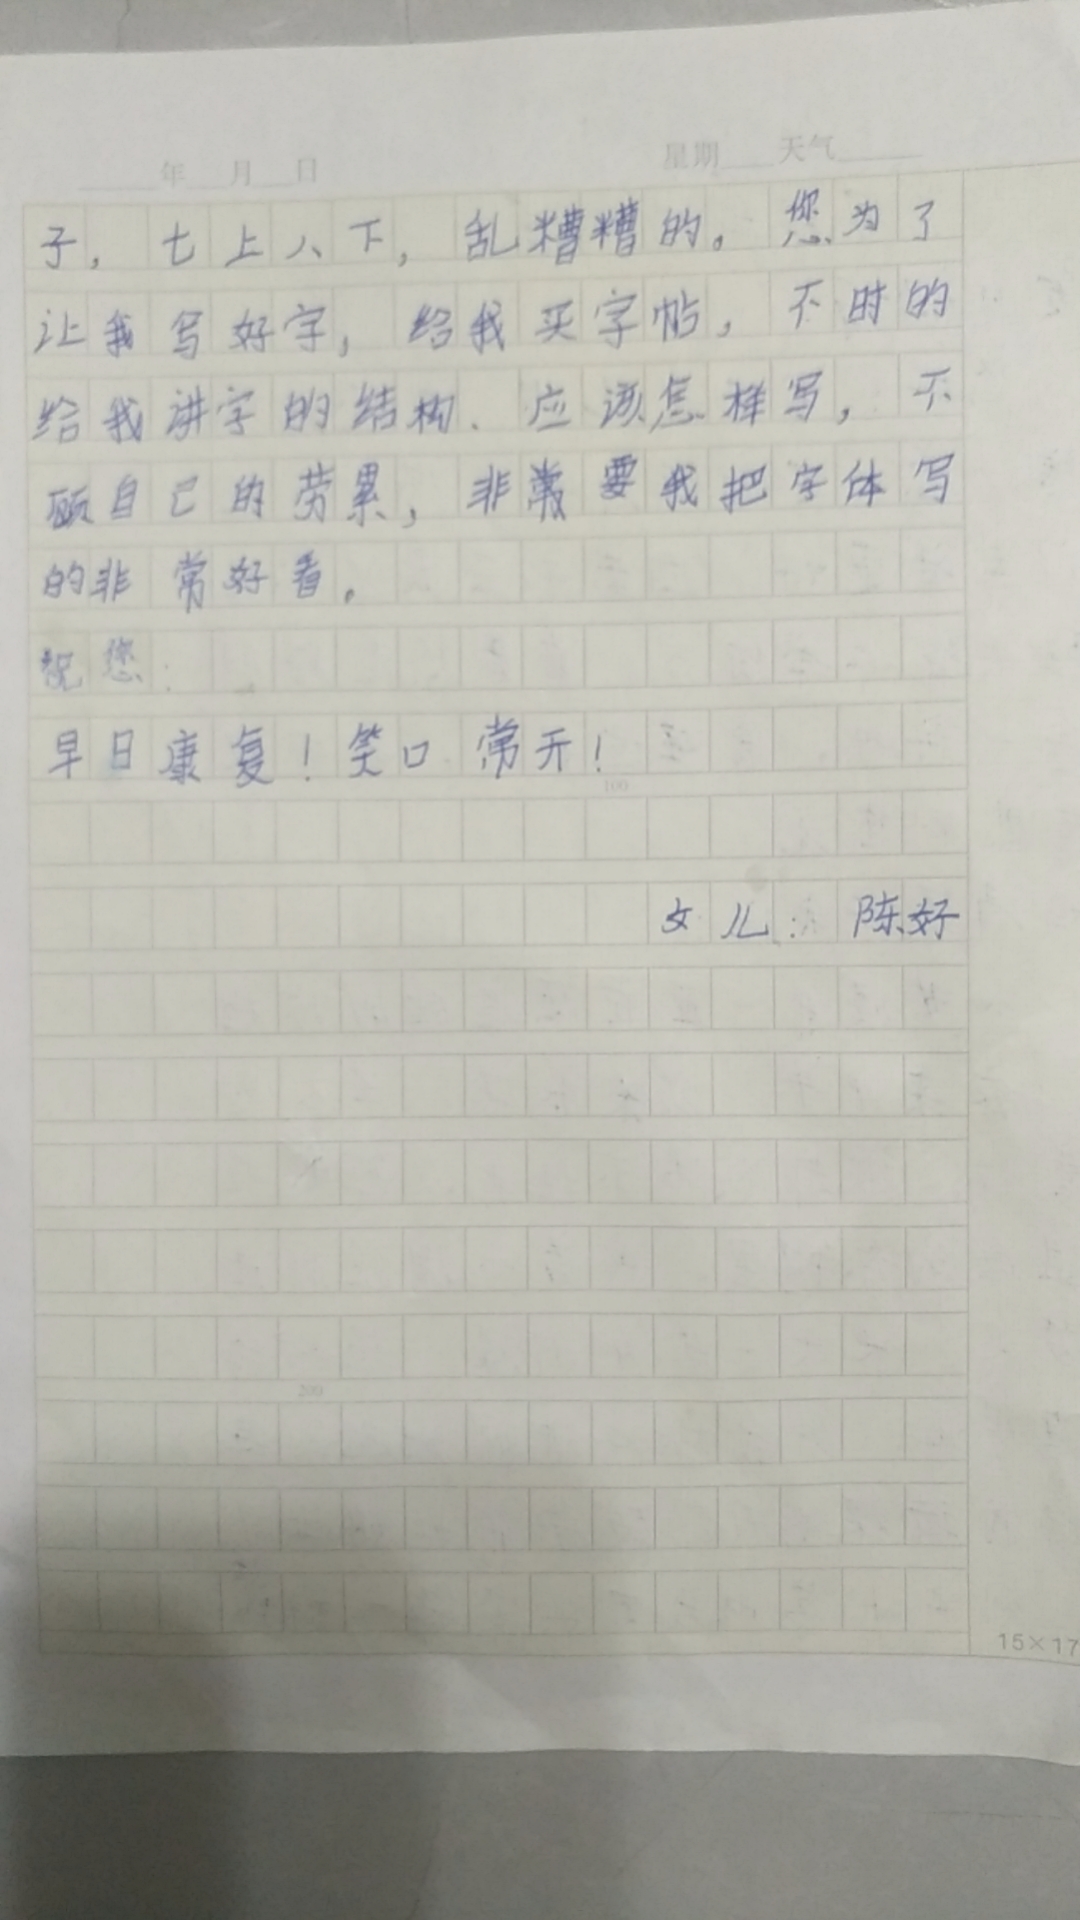 年 月 日 星期 天气
子，七上八下，乱糟糟的。您为了
让我写好字，给我买字帖，不时的
给我讲字的结构、应该怎样写，不
顾自己的劳累，非常要我把字体写
的非常好看。
祝您：
早日康复！笑口常开！
100
女儿：陈好
200
15×17